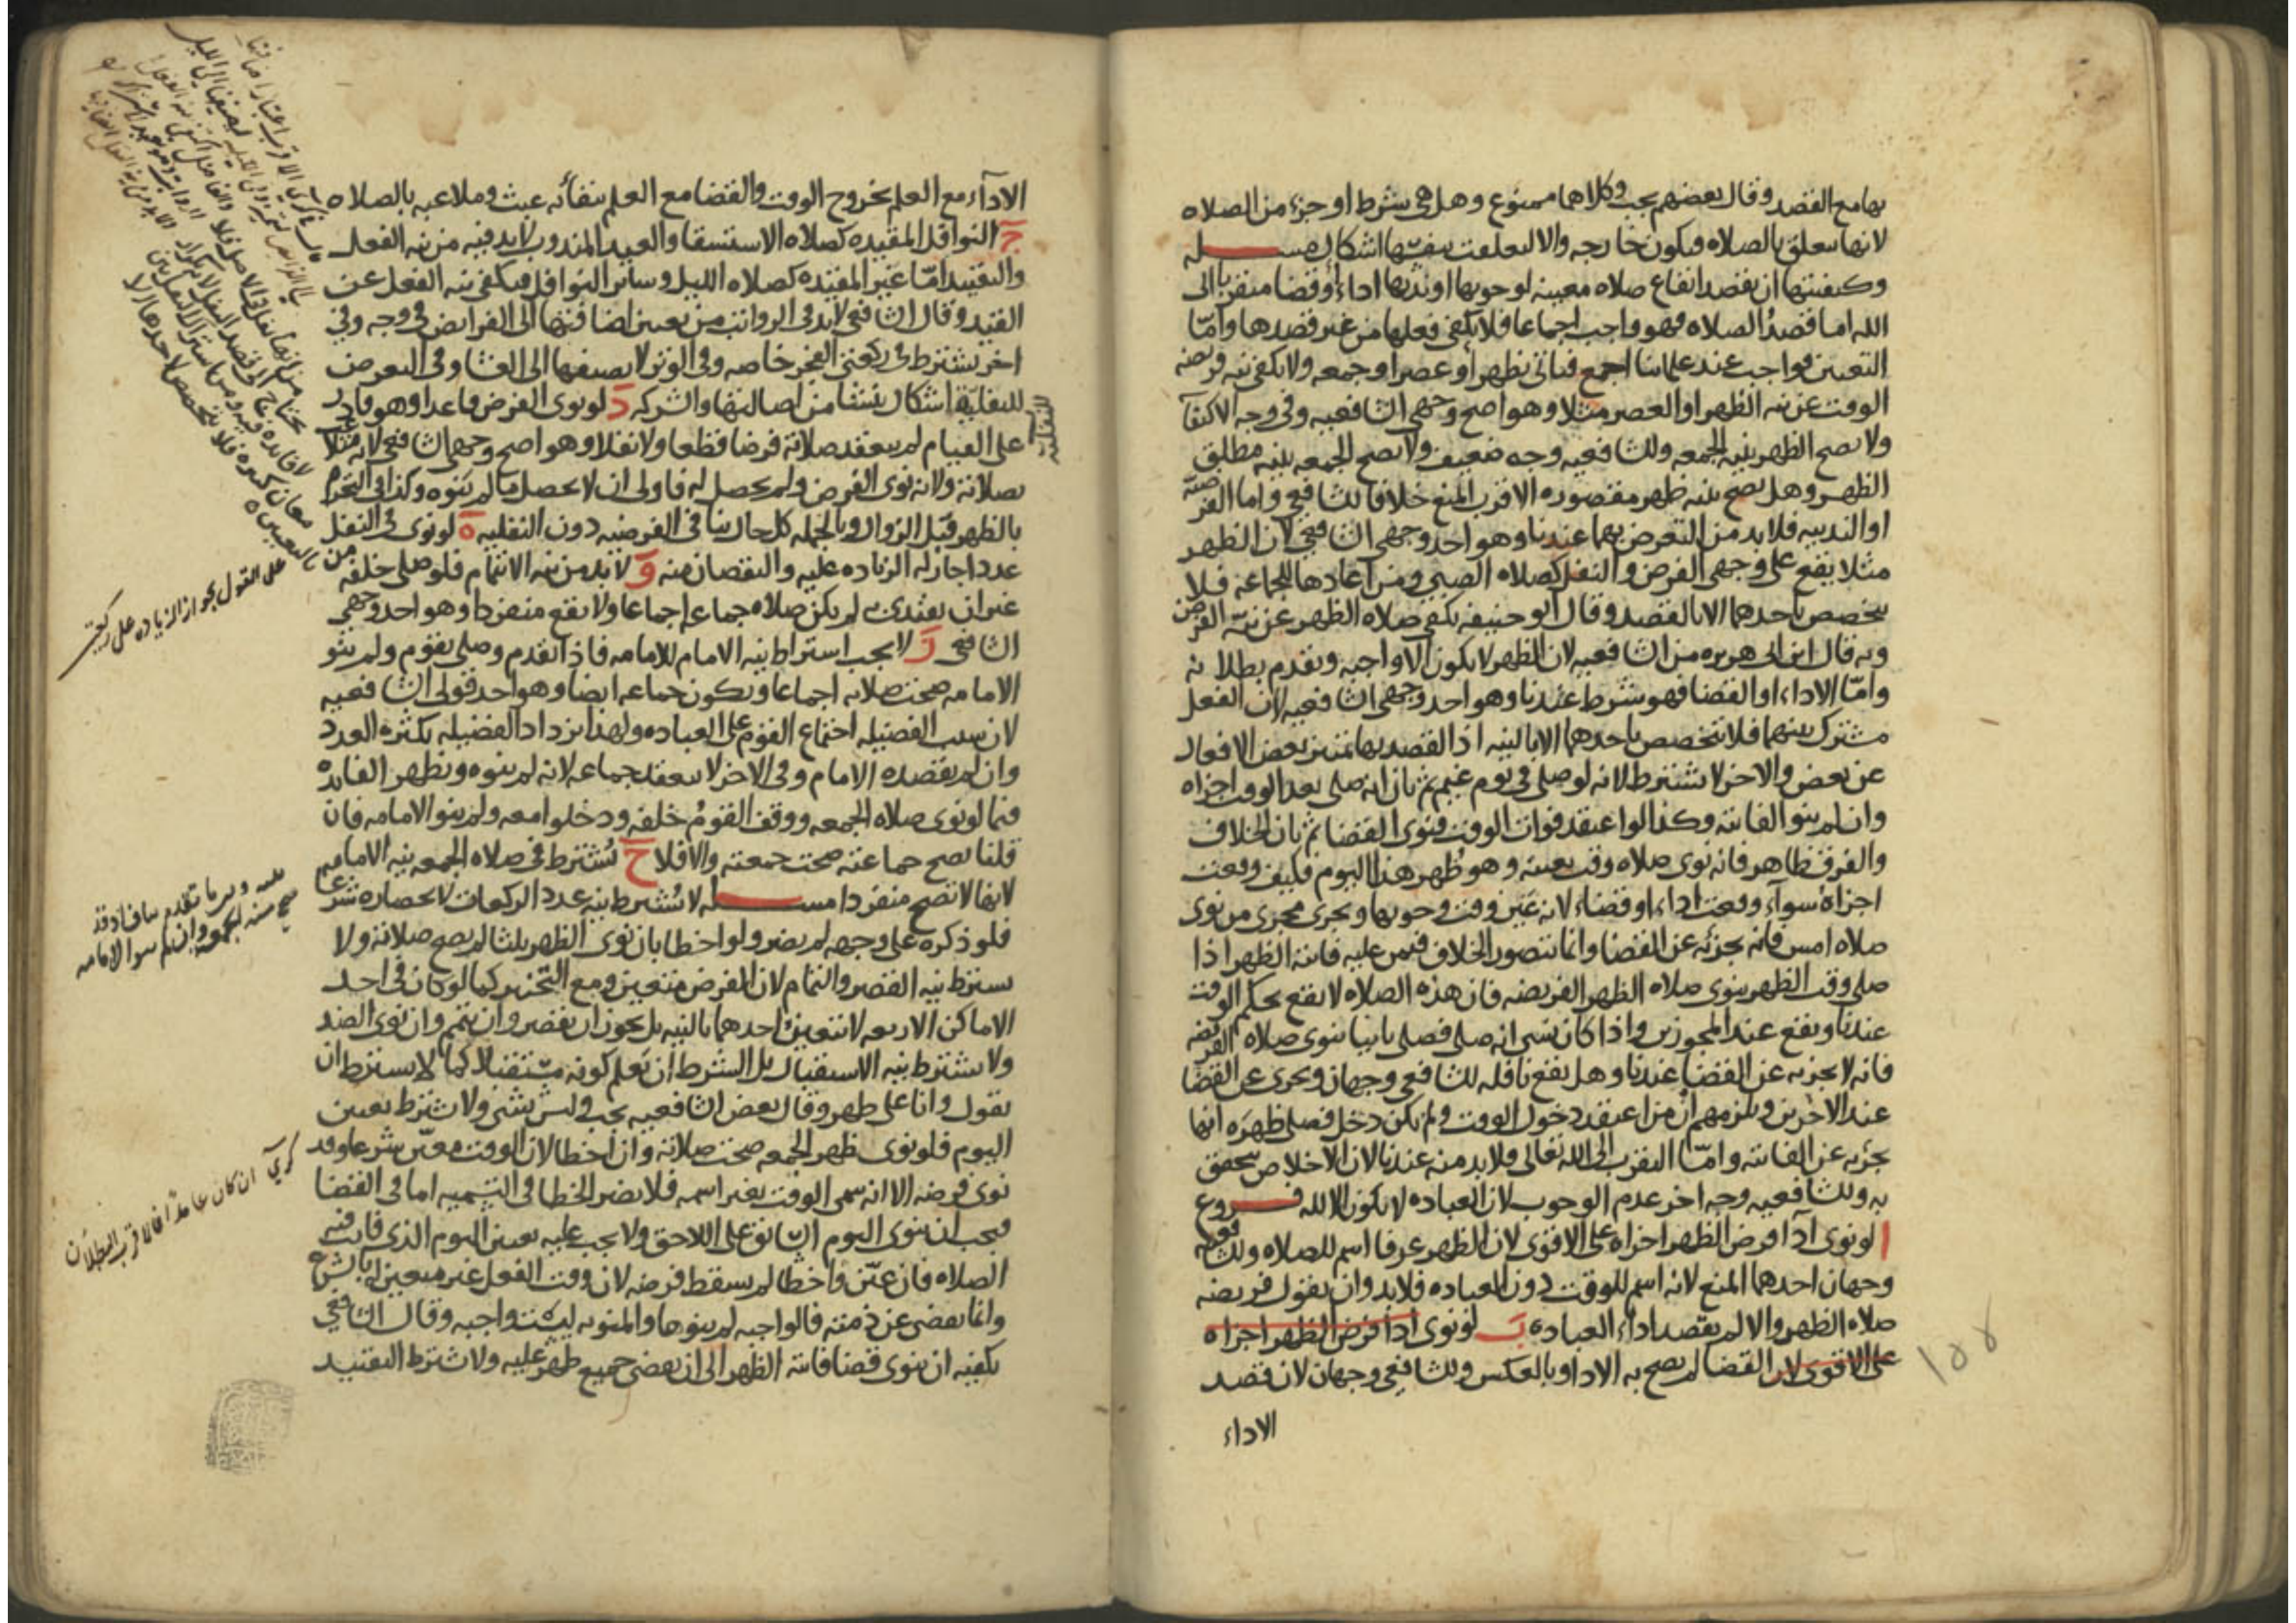 بها مع القصد وقال بعضهم يجب وكلاهما ممنوع وهل هي شرط او جزء من الصلاه
لانها تتعلق بالصلاه فتكون خارجه والا لتعلقت بنفسها اشكال مسله
وكيفيتها ان يقصد ايقاع صلاه معينه لوجوبها او ندبها اداء او قضا متقربا الى
الله اما قصد الصلاه فهو واجب اجماعا فلا يكفي فعلها من غير قصدها وامّا
التعيين فواجب عند علمائنا اجمع فياتي بظهر او عصر او جمعه ولا يكفي نيه فريضه
الوقت عن نيه الظهر او العصر مثلا وهو اصح وجهي الشافعيه وفي وجه الاكتفآ
ولا يصح الظهر بنيه الجمعه وللشافعيه وجه ضعيف ولا تصح الجمعه بنيه مطلق
الظهر وهل يصح بنيه ظهر مقصوره الاقرب المنع خلافا للشافعي واما الفرضيه
او الندبيه فلا بد من التعرض بهما عندنا وهو احد وجهي الشافعي لان الظهر
مثلا يقع على وجهي الفرض والنفل كصلاه الصبي ومن اعادها للجماعه فلا
يتخصص باحدهما الا بالقصد وقال ابو حنيفه يكفي صلاه الظهر عن نيّه الفرض
وبه قال ابن ابي هريره من الشافعيه لان الظهر لا يكون الا واجبه وتقدم بطلانه
وامّا الاداء او القضا فهو شرط عندنا وهو احد وجهي الشافعيه لان الفعل
مشترك بينهما فلا يتخصص باحدهما الا بالنيه اذ القصد بها تمييز بعض الافعال
عن بعض والاخر لا يشترط لانه لو صلى في يوم غيم ثم بان انه صلى بعد الوقت اجزاه
وان لم ينو الفائته وكذا لو اعتقد فوات الوقت فنوى القضا ثم بان الخلاف
والفرق ظاهر فانه نوى صلاه وقت بعينه وهو ظهر هذا اليوم فكيف وقعت
اجزاه سوآء وقعت اداء او قضاء لانه عيّن وقت وجوبها ويجرى مجرى من نوى
صلاه امس فانه يجزئه عن القضا وانما يتصور الخلاف فيمن عليه فائته الظهر اذا
صلى وقت الظهر ينوى صلاه الظهر الفريضه فان هذه الصلاه لا تقع بحكم الوقت
عندنا وتقع عند المجوزين واذا كان نسي انه صلى فصلى ثانيا ينوى صلاه الفريضه
فانه لا يجزيه عن القضا عندنا وهل يقع نافله للشافعي وجهان ويجزى عن القضا
عند الاخرين ويلزمهم ان من اعتقد دخول الوقت ولم يكن دخل فصلى ظهره انها
يجزيه عن الفائته وامّا التقرب الى الله تعالى فلا بد منه عندنا لان الاخلاص يتحقق
به وللشافعيه وجه اخر عدم الوجوب لان العباده لا يكون الا لله فروع
ا لو نوى ادآ فرض الظهر اجزاه على الاقوى لان الظهر عرفا اسم للصلاه وللشافعيه
وجهان احدهما المنع لانه اسم للوقت دون العباده فلا بد وان يقول فريضه
صلاه الظهر والا لم يقصد اداء العباده ب لو نوى ادا فرض الظهر اجزاه
على الاقوى لان القضا لم يصح به الادا وبالعكس وللشافعي وجهان لان قصد
الاداء
الادآء مع العلم بخروج الوقت والقضا مع العلم ببقائه عبث وملاعبه بالصلاه
ج النوافل المقيده كصلاه الاستسقا والعيد المندوب لا بد فيه من نيه الفعل
والتقييد امّا غير المقيده كصلاه الليل وسائر النوافل فيكفي نيه الفعل عن
القيد وقال الشافعي لا بد في الرواتب من تعيين اضافتها الى الفرايض في وجه وفي
اخر يشترط في ركعتي الفجر خاصه وفي الوتر لا يضيفها الى العشا وفي التعرض
للنفليّه اشكال ينشا من اصالتها والشركه د لو نوى الفرض قاعدا وهو قادر
على القيام لم ينعقد صلاته فرضا قطعا ولا نفلا وهو اصح وجهي الشافعي لانه متلاعب
بصلاته ولانه نوى الفرض ولم يحصل له فاولى ان لا يحصل ما لم ينوه وكذا في التحرم
بالظهر قبل الزوال وبالجمله كل حال ينافي الفرضيه دون النفليه ه لو نوى في النفل
عددا جاز له الزياده عليه والنقصان منه و لا بد من نيه الائتمام فلو صلى خلفه من
غير ان يقتدى به لم يكن صلاه جماعه اجماعا ولا يقع منفردا وهو احد وجهي
الشافعي ز لا يجب اشتراط نيه الامام للامامه فاذا تقدم وصلى بقوم ولم ينو
الامامه صحت صلاته اجماعا ويكون جماعه ايضا وهو احد قولي الشافعيه
لان سبب الفضيله اجتماع القوم على العباده ولهذا تزداد الفضيله بكثره العدد
وان لم يقصده الامام وفي الاخر لا ينعقد جماعه لانه لم ينوه وتظهر الفايده
فيما لو نوى صلاه الجمعه ووقف القوم خلفه ودخلوا معه ولم ينو الامامه فان
قلنا تصح جماعته صحت جمعته والا فلا ح يشترط في صلاه الجمعه نيه الامامه
لانها لا تصح منفردا مسله لا يشترط نيه عدد الركعات لانحصاره شرعا
فلو ذكره على وجهه لم يضر ولو اخطا بان نوى الظهر ثلثا لم يصح صلاته ولا
يشترط نيه القصر والتمام لان الفرض متعين ومع التخيير كما لو كان في احد
الاماكن الاربعه لا يتعين احدهما بالنيه بل يجوز ان يقصر وان يتمم وان نوى الضد
ولا يشترط نيه الاستقبال بل الشرط ان يعلم كونه مستقبلا كما لا يشترط ان
يقول وانا على طهر وقال بعض الشافعيه يجب وليس بشي ولا يشترط تعيين
اليوم فلو نوى ظهر الجمعه صحت صلاته وان اخطا لان الوقت معيّن شرعا وقد
نوى فرضه الا انه سمى الوقت بغير اسمه فلا يضر الخطا في التسميه اما في القضا
فيجب ان ينوى اليوم السابق على اللاحق ولا يجب عليه تعيين اليوم الذى فات فيه
الصلاه فان عيّن واخطا لم يسقط فرضه لان وقت الفعل غير متعين له بالشرع
وانما يقضى عن ذمته فالواجبه لم ينوها والمنويه ليست واجبه وقال الشافعي
يكفيه ان ينوى قضا فائته الظهر الى ان يقضى جميع ظهر عليه ولا يشترط التقييد
للنفليه
على القول بجواز الزياده على ركعتين
كرى ان كان عامدا فالاقرب البطلان
١٥٥